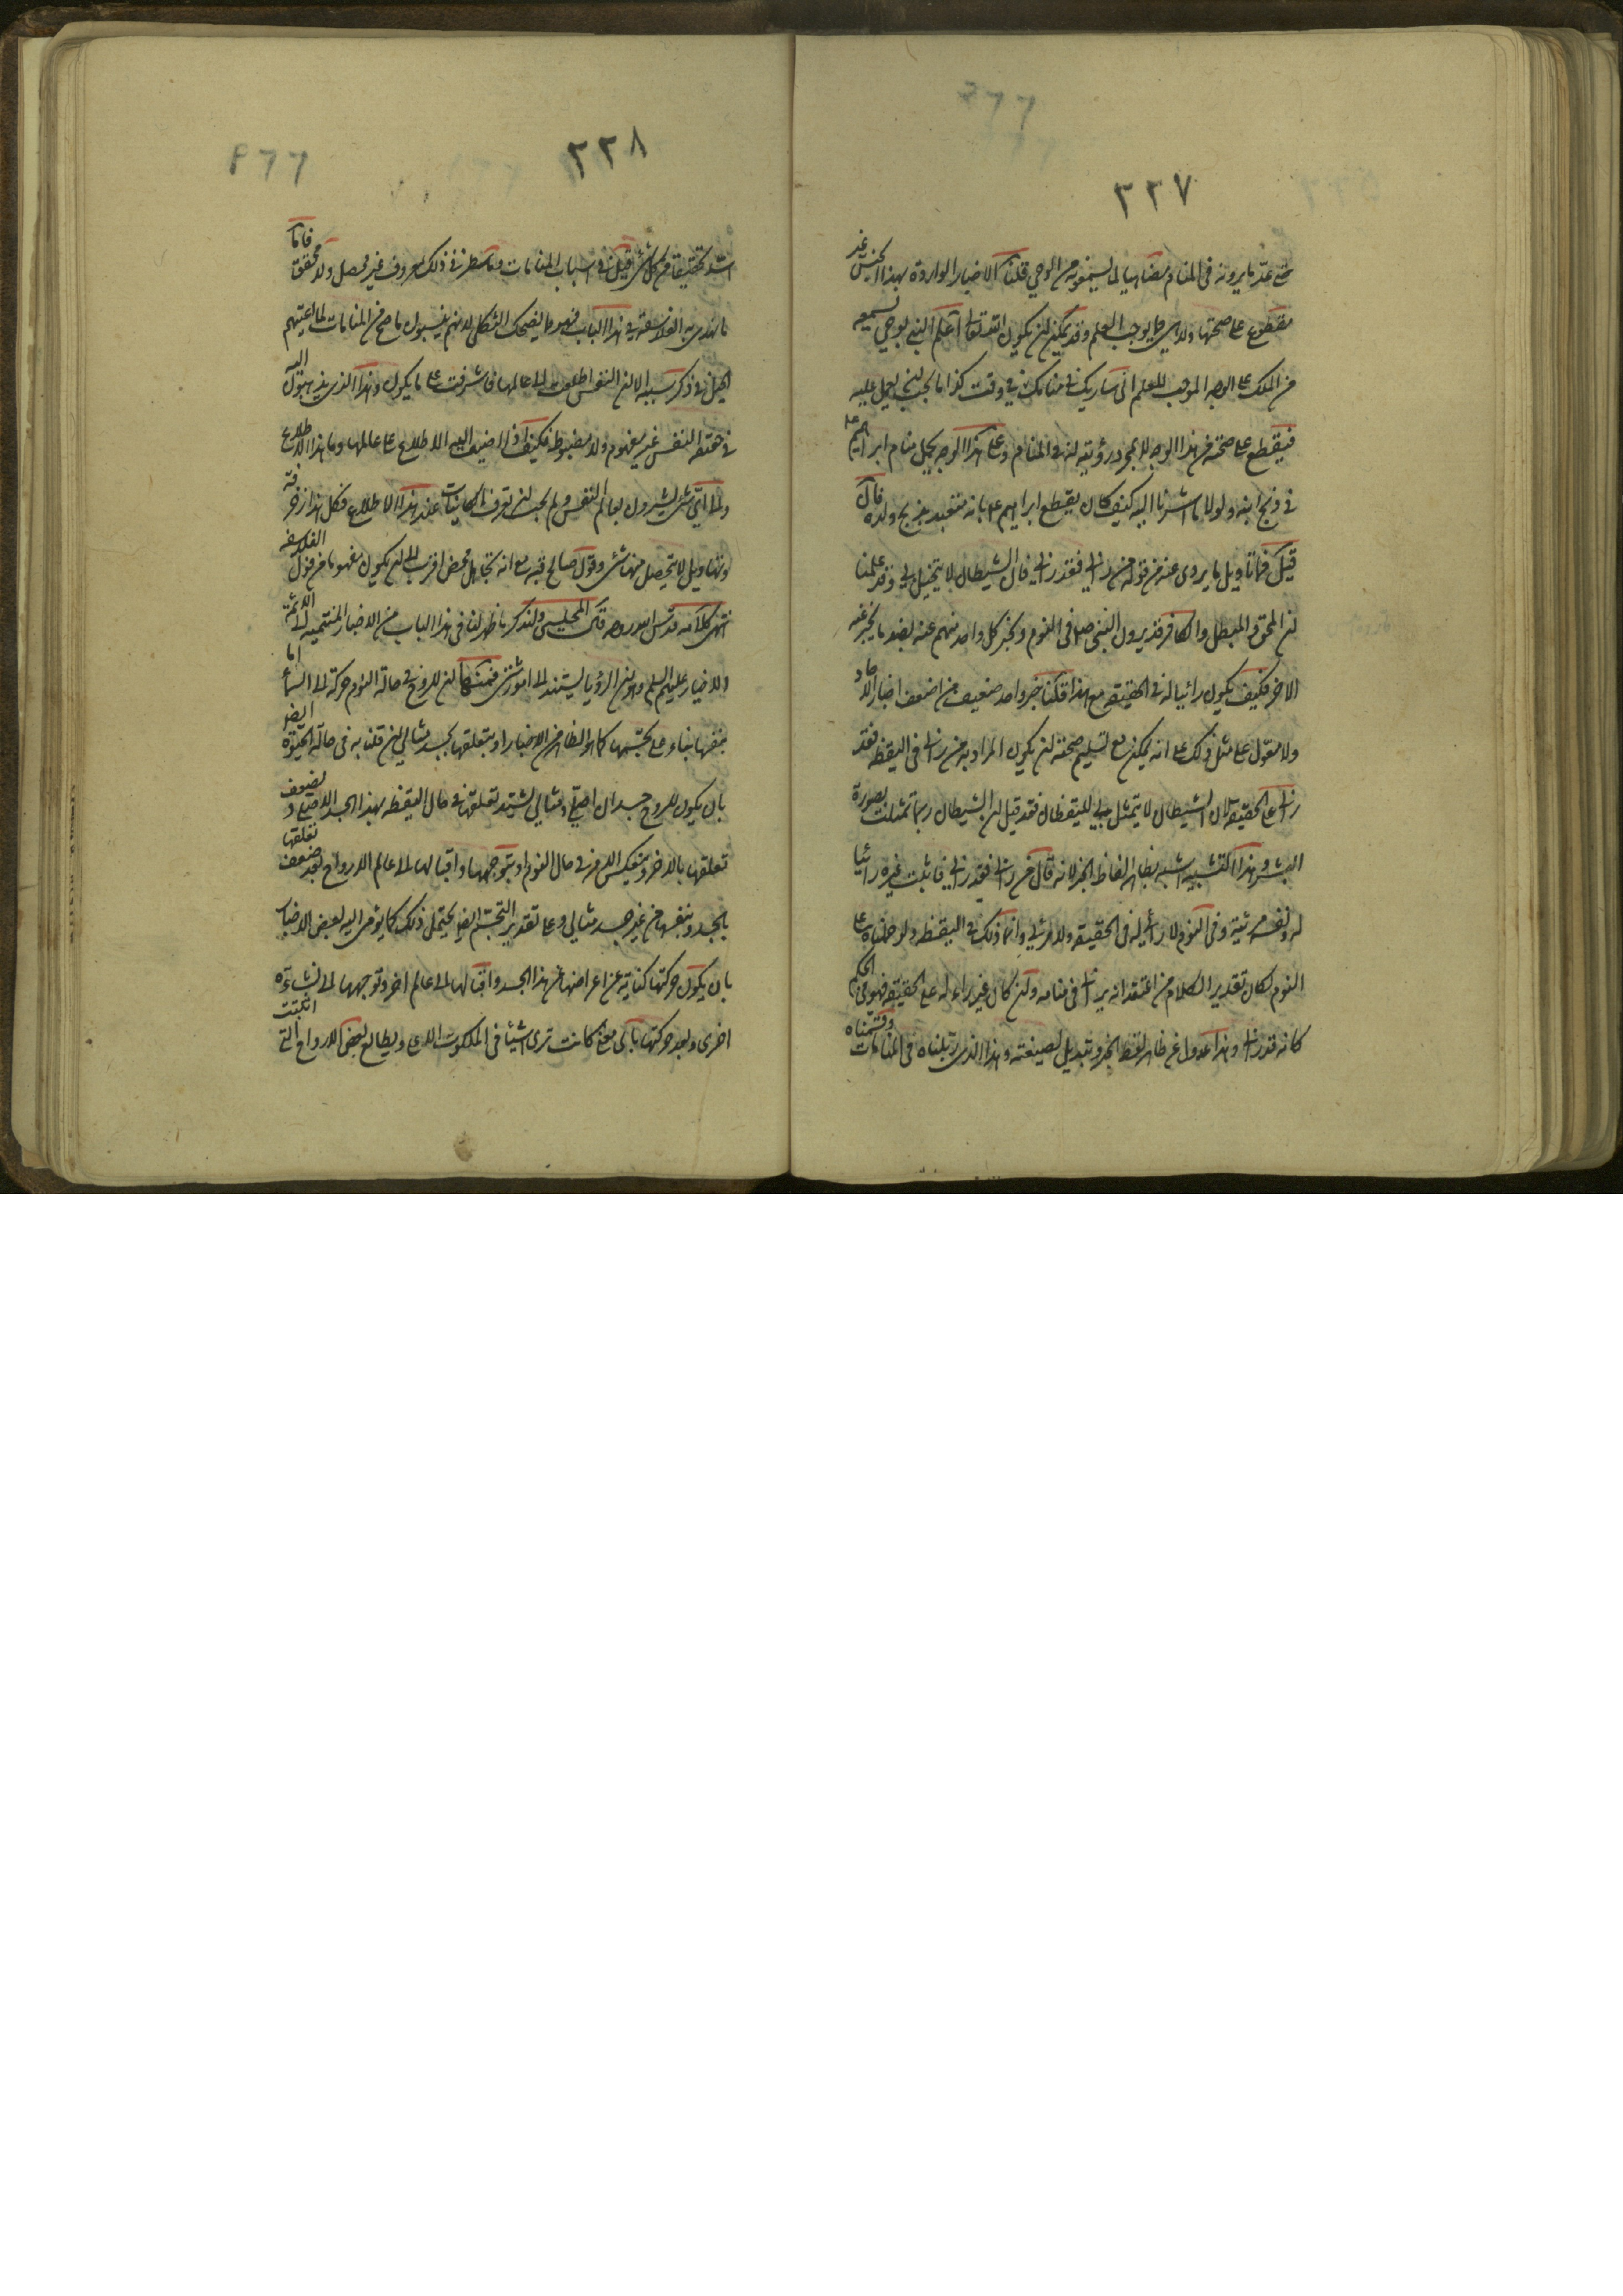 ٢٢٧
حتى عد ما يرونه فى المنام مضاهيا لما يسمعونه من الوحى قلنا الاخبار الواردة بهذا الجنس غير
مقطوع على صحتها ولا هى مما يوجب العلم وقد يمكن ان يكون الله تعالى اعلم النبى بوحى يسمعه
من الملك على الوجه الموجب للعلم انى ساريك فى منامك فى وقت كذا ما يجب ان يعمل عليه
فيقطع على صحته من هذا الوجه لا بمجرد رؤيته له فى المنام وعلى هذا الوجه يحمل منام ابراهيم ع
فى ذبح ابنه ولولا ما اشرنا اليه كيف كان يقطع ابراهيم ع بانه متعبد بذبح ولده فان
قيل فما تاويل ما يروى عنه من قوله من رانى فقد رانى فان الشيطان لا يتخيل بى وقد علمنا
ان المحق والمبطل والكافر قد يرون النبى ص فى النوم ويخبر كل واحد منهم عنه بضد ما يخبر عنه
الاخر فكيف يكون رائيا له فى الحقيقة مع هذا قلنا هذا خبر واحد ضعيف من اضعف اخبار الاحاد
ولا معول على مثل ذلك على انه يمكن مع تسليم صحته ان يكون المراد به من رانى فى اليقظه فقد
رانى على الحقيقة لان الشيطان لا يتمثل بى لليقظان فقد قيل ان الشيطان ربما تمثلت بصورة
البشر وهذا التشبيه اشبه بظاهر الفاظ الخبر لانه قال من رانى فقد رانى فاثبت غيره رائيا
له ونفسه مرئية وفى النوم لا رائى له فى الحقيقه ولا مرئى وانما ذلك فى اليقظه ولو حملناه على
النوم لكان تقدير الكلام من اعتقد انه يرانى فى منامه وان كان غير راء له على الحقيقه فهو فى الحكم
كانه قد رانى وهذا عدول عن ظاهر لفظ الخبر وتبديل لصيغته وهذا الذى رتبناه فى المنامات وقسمناه
٢٢٨
اسد تحقيقا من كل شئ قيل فى اسباب المنامات وما سطر فى ذلك معروف غير محصل ولا محقق فاما
ما يهذى به الفلاسفة فى هذا الباب فهو مما يضحك الثكلى لانهم ينسبون ما صح من المنامات لما اعيتهم
الحيل فى ذكر سببه الا ان النفس اطلعت الى عالمها فاشرفت على ما يكون وهذا الذى يذهبون اليه
فى حقيقة النفس غير مفهوم ولا مضبوط فكيف اذا اضيف اليه الاطلاع على عالمها وما هذا الاطلاع
والى اى شئ يشيرون بعالم النفس ولم يجب ان تعرف الكاينات عند هذا الاطلاع فكل هذا زخرفة
وتهاويل لا يتحصل منها شئ وقول صالح قبه مع انه تجاهل محض اقرب الى ان يكون مفهوما من قول الفلاسفه
انتهى كلامه قدس الله روحه قال المجلسى ولنذكر ما ظهر لنا فى هذا الباب من الاخبار المنتمية الى الائمة
الاخيار عليهم السلم وهو ان الرؤيا يستند الى امور شتى فمنها ان للروح فى حالة النوم حركة الى السماء اما
بنفسها بناء على تجسمها كما هو الظاهر من الاخبار او بتعلقها بجسد مثالى ان قلنا به فى حالة الحيوة ايضا
بان يكون للروح جسدان اصلى ومثالى يشتد تعلقها فى حال اليقظه بهذا الجسد الاصلى و يضعف
تعلقها بالاخر وينعكس الامر فى حال النوم او بتوجهها واقبالها الى عالم الارواح بعد ضعف تعلقها
بالجسد بنفسها من غير جسد مثالى وعلى تقدير التجسم ايضا يحتمل ذلك كما يومى اليه بعض الاخبار
بان يكون حركتها كناية عن اعراضها عن هذا الجسد واقبالها الى عالم اخر وتوجهها الى نشاءة
اخرى وبعد حركتها باى معنى كانت ترى اشياء فى الملكوت الاعلى ويطالع بعض الالواح التى اثبتت